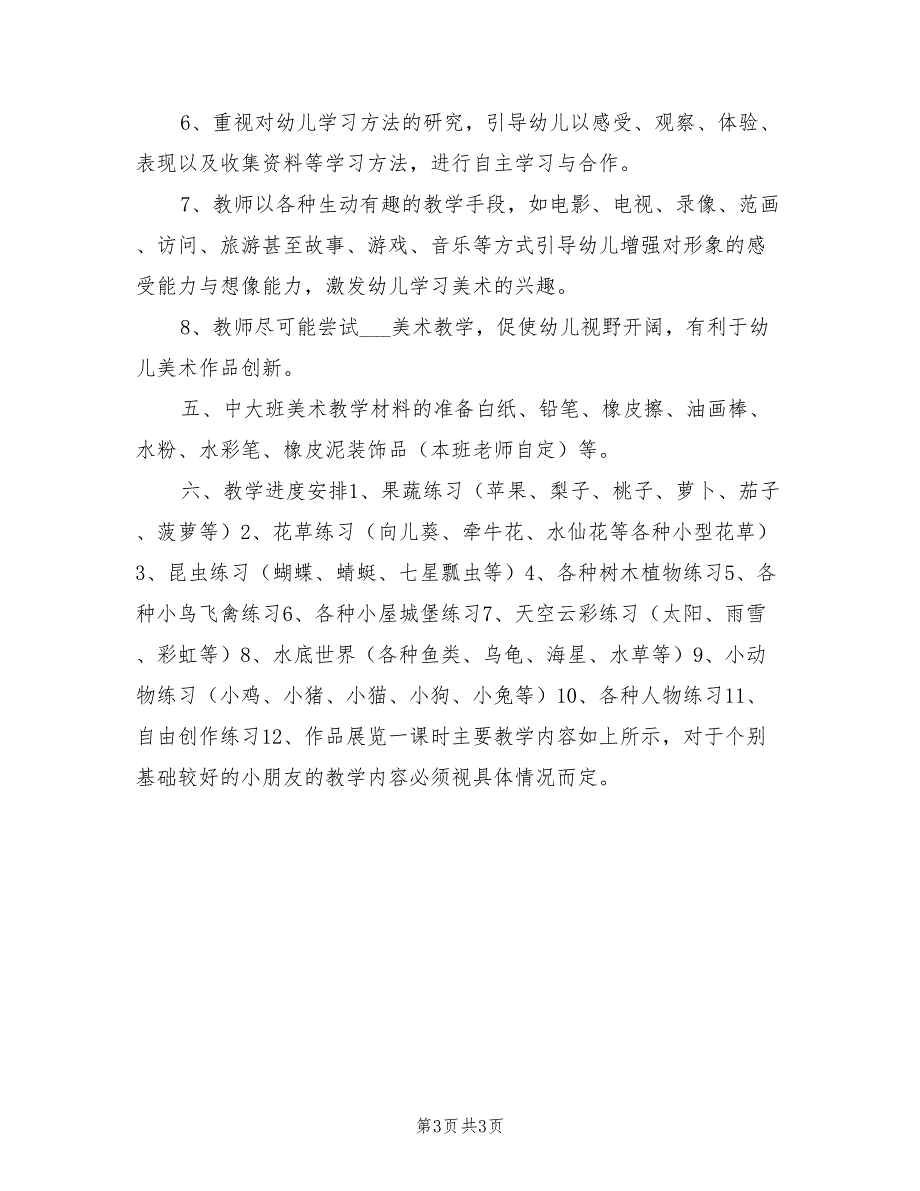 6、重视对幼儿学习方法的研究，引导幼儿以感受、观察、体验、
表现以及收集资料等学习方法，进行自主学习与合作。
7、教师以各种生动有趣的教学手段，如电影、电视、录像、范画
、访问、旅游甚至故事、游戏、音乐等方式引导幼儿增强对形象的感
受能力与想像能力，激发幼儿学习美术的兴趣。
8、教师尽可能尝试___美术教学，促使幼儿视野开阔，有利于幼
儿美术作品创新。
五、中大班美术教学材料的准备白纸、铅笔、橡皮擦、油画棒、
水粉、水彩笔、橡皮泥装饰品（本班老师自定）等。
六、教学进度安排1、果蔬练习（苹果、梨子、桃子、萝卜、茄子
、菠萝等）2、花草练习（向儿葵、牵牛花、水仙花等各种小型花草）
3、昆虫练习（蝴蝶、蜻蜓、七星瓢虫等）4、各种树木植物练习5、各
种小鸟飞禽练习6、各种小屋城堡练习7、天空云彩练习（太阳、雨雪
、彩虹等）8、水底世界（各种鱼类、乌龟、海星、水草等）9、小动
物练习（小鸡、小猪、小猫、小狗、小兔等）10、各种人物练习11、
自由创作练习12、作品展览一课时主要教学内容如上所示，对于个别
基础较好的小朋友的教学内容必须视具体情况而定。
第3页 共3页